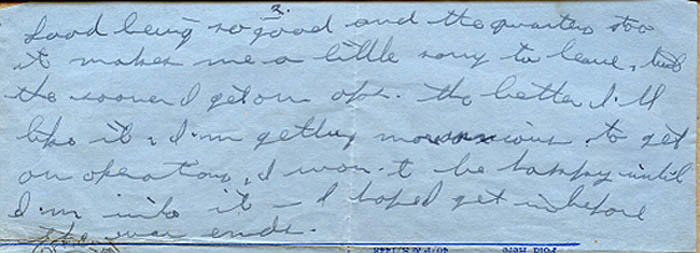 2.
food being so good and the quarters too
it makes me a little sorry to leave, but
the sooner I get on ops. the better I'll
like it, I'm getting more anxious to get
on operations, I won't be happy until
I'm into it – I hope I get in before
the war ends.
Fold Here